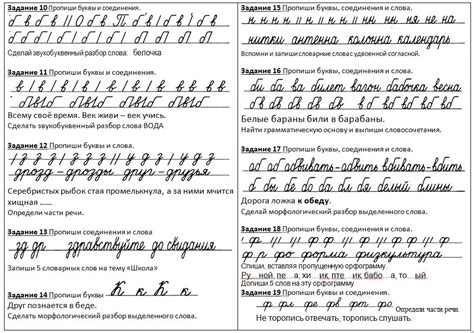 Задание 10 Пропиши буквы и соединения.
Сделай звукобуквенный разбор слова: белочка
Задание 11 Пропиши буквы и соединения.
Всему своё время. Век живи – век учись.
Сделать звукобуквенный разбор слова ВОДА
Задание 12 Пропиши буквы и соединения.
дрозд – дрозды друг – друзья
Серебристых рыбок стая промелькнула, а за ними мчится
хищная ......
Определи части речи.
Задание 13 Пропиши буквы, соединения и слова
зд др здравствуйте до свидания
Запиши 5 словарных слов на тему «Школа»
Задание 14 Пропиши буквы
К к К к
Друг познается в беде.
Сделать морфологический разбор выделенного слова.
Задание 15 Пропиши буквы, соединения и слова.
нитки антенна колонна календарь
Вспомни и запиши словарные слова с удвоенной согласной.
Задание 16 Пропиши буквы, соединения и слова.
би ба ва билет вагон бабочка весна
Белые бараны били в барабаны.
Найти грамматическую основу и выпиши словосочетания.
Задание 17 Пропиши буквы, соединения и слова.
Дорога ложка к обеду.
Сделай морфологический разбор выделенного слова.
Задание 18 Пропиши буквы, соединения и слова.
ф р фо форма физкультура
Спиши, вставляя пропущенную орфограмму.
Ру__ной, пе__а, хи__ик, пте__ик, бабо__а, то__ый.
Допиши 5 слов на эту орфограмму
Задание 19 Пропиши буквы, соединения.
ф фл фе фв фт фо Определи части речи.
Не торопись отвечать, торопись слушать.